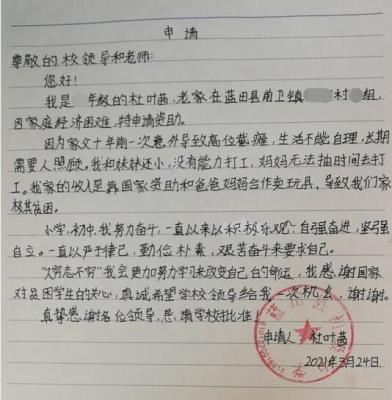 申请
尊敬的校领导和老师:
您好!
我是 年级的杜叶茜,老家在蓝田县前卫镇 村 组,
因家庭经济困难,特申请资助。
因为家父十年前一次意外导致高位截瘫,生活不能自理,长期
需要人照顾。我和妹妹还小,没有能力打工,妈妈无法抽时间去打
工。我家的收入是靠国家资助和爸爸妈妈合作卖玩具,导致我们家
极其贫困。
小学,初中,我努力奋斗,一直以来以积极乐观、自强奋进,坚强
自立。一直以严于律己,勤俭朴素,艰苦奋斗来要求自己。
“穷志不穷”我会更加努力学习来改变自己的命运,我感谢国家
对贫困学生的关心,真诚希望学校领导给我一次机会,谢谢。
真挚感谢各位领导,恳请学校批准!
申请人:杜叶茜
2021年3月24日
蓝田县